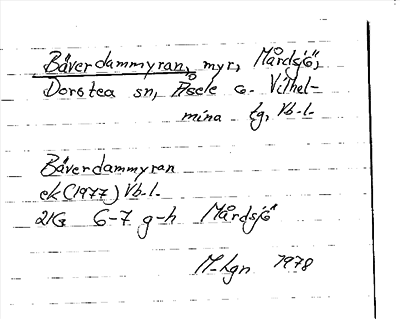 Bäverdammyran, myr, Mårdsjö,
Dorotea sn, Åsele o. Vilhel-
mina tg, Vb-l.
Bäverdammyran
ek (1977) Vb-l.
21G 6-7 g-h Mårdsjö
M-hgn 1978